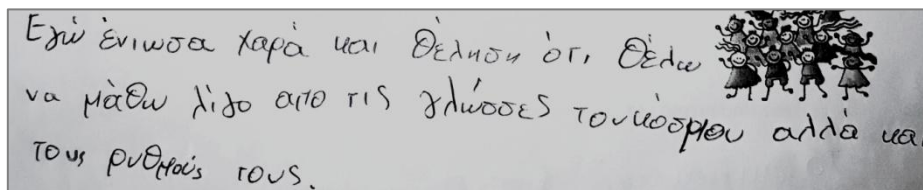 Εγώ ένιωσα χαρά και θέληση ότι θέλω
να μάθω λίγο απο τις γλώσσες του κόσμου αλλά και
τους ρυθμούς τους.